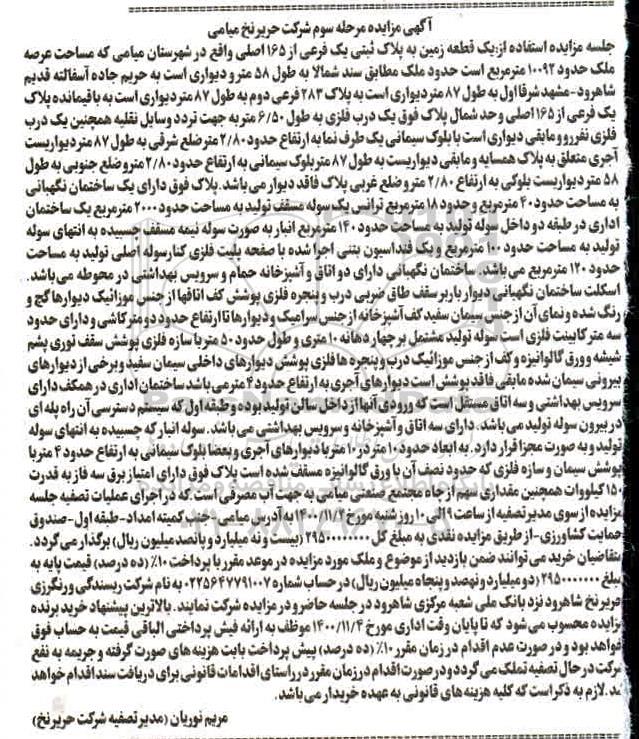 آگهی مزایده مرحله سوم شرکت حریرنخ میامی
جلسه مزایده استفاده از: یک قطعه زمین به پلاک ثبتی یک فرعی از ۱۶۵ اصلی واقع در شهرستان میامی که مساحت عرصه
ملک حدود ۱۰۰۹۲ مترمربع است حدود ملک مطابق سند شمالا به طول ۵۸ متر و دیواری است به حریم جاده آسفالته قدیم
شاهرود-مشهد شرقا اول به طول ۸۷ متر دیواری است به پلاک ۲۸۳ فرعی دوم به طول ۸۷ متر دیواری است به باقیمانده پلاک
یک فرعی از ۱۶۵ اصلی و حد شمال پلاک فوق یک درب فلزی به طول ۶/۵۰ متر به جهت تردد وسایل نقلیه همچنین یک درب
فلزی نفررو و مابقی دیواری است با بلوک سیمانی یک طرف نما به ارتفاع حدود ۲/۸۰ متر ضلع شرقی به طول ۸۷ متر دیواریست
آجری متعلق به پلاک همسایه و مابقی دیواریست به طول ۸۷ متر بلوک سیمانی به ارتفاع حدود ۲/۸۰ متر و ضلع جنوبی به طول
۵۸ متر دیواریست بلوکی به ارتفاع ۲/۸۰ متر و ضلع غربی پلاک فاقد دیوار می باشد. پلاک فوق دارای یک ساختمان نگهبانی
به مساحت حدود ۴۰ مترمربع و حدود ۱۸ مترمربع ترانس یک سوله مسقف تولید به مساحت حدود ۲۰۰۰ مترمربع یک ساختمان
اداری در طبقه دو داخل سوله تولید به مساحت حدود ۱۴۰ مترمربع انبار به صورت سوله نیمه مسقف چسبیده به انتهای سوله
تولید به مساحت حدود ۱۰۰ مترمربع و یک فنداسیون بتنی اجرا شده با صفحه پلیت فلزی کنار سوله اصلی تولید به مساحت
حدود ۱۲۰ مترمربع می باشد. ساختمان نگهبانی دارای دو اتاق و آشپزخانه حمام و سرویس بهداشتی در محوطه می باشد.
اسکلت ساختمان نگهبانی دیوار باربر سقف طاق ضربی درب و پنجره فلزی پوشش کف اتاقها از جنس موزائیک دیوارها گچ و
رنگ شده و نمای آن از جنس سیمان سفید کف آشپزخانه از جنس سرامیک و دیوارها تا ارتفاع حدود دو متر کاشی و دارای حدود
سه متر کابینت فلزی است سوله تولید مشتمل بر چهار دهانه ۱۰ متری و طول حدود ۵۰ متر با سازه فلزی پوشش سقف توری پشم
شیشه و ورق گالوانیزه و کف از جنس موزائیک درب و پنجره ها فلزی پوشش دیوارهای داخلی سیمان سفید و برخی از دیوارهای
بیرونی سیمان شده مابقی فاقد پوشش است دیوارهای آجری به ارتفاع حدود ۴ متر می باشد ساختمان اداری در همکف دارای
سرویس بهداشتی و سه اتاق مستقل است که ورودی آنها از داخل سالن تولید بوده و طبقه اول که سیستم دسترسی آن راه پله ای
در بیرون سوله تولید می باشد. دارای سه اتاق و آشپزخانه و سرویس بهداشتی می باشد. سوله انبار که چسبیده به انتهای سوله
تولید و به صورت مجزا قرار دارد. به ابعاد حدود ۱۰ متر در ۱۰ متر با دیوارهای آجری و بعضا بلوک سیمانی به ارتفاع حدود ۴ متر با
پوشش سیمان و سازه فلزی که حدود نصف آن با ورق گالوانیزه مسقف شده است پلاک فوق دارای امتیاز برق سه فاز به قدرت
۱۵۰ کیلووات همچنین مقداری سهم از چاه مجتمع صنعتی میامی به جهت آب مصرفی است که در اجرای عملیات تصفیه جلسه
مزایده از سوی مدیر تصفیه از ساعت ۹ الی ۱۰ روز شنبه مورخ ۱۴۰۰/۱۱/۲ به آدرس میامی-جنب کمیته امداد-طبقه اول-صندوق
حمایت کشاورزی-از طریق مزایده نقدی به مبلغ کل ۲۹۵۰۰۰۰۰۰۰۰ (بیست و نه میلیارد و پانصد میلیون ریال) برگذار می گردد.
متقاضیان خرید می توانند ضمن بازدید از موضوع و ملک مورد مزایده در موعد مقرر با پرداخت ۱۰٪ (ده درصد) قیمت پایه به
مبلغ ۲۹۵۰۰۰۰۰۰۰ (دو میلیارد و نهصد و پنجاه میلیون ریال) در حساب شماره ۰۲۲۵۶۴۷۷۹۱۰۰۷ به نام شرکت ریسندگی و رنگرزی
حریر نخ شاهرود نزد بانک ملی شعبه مرکزی شاهرود در جلسه حاضر و در مزایده شرکت نمایند. بالاترین پیشنهاد خرید برنده
مزایده محسوب می شود که تا پایان وقت اداری مورخ ۱۴۰۰/۱۱/۴ موظف به ارائه فیش پرداختی الباقی قیمت به حساب فوق
خواهد بود و در صورت عدم اقدام در زمان مقرر ۱۰٪ (ده درصد) پیش پرداخت بابت هزینه های صورت گرفته و جریمه به نفع
شرکت در حال تصفیه تملک می گردد و در صورت اقدام در زمان مقرر در راستای اقدامات قانونی برای دریافت سند اقدام خواهد
شد. لازم به ذکر است که کلیه هزینه های قانونی به عهده خریدار می باشد.
مریم نوریان (مدیر تصفیه شرکت حریرنخ)